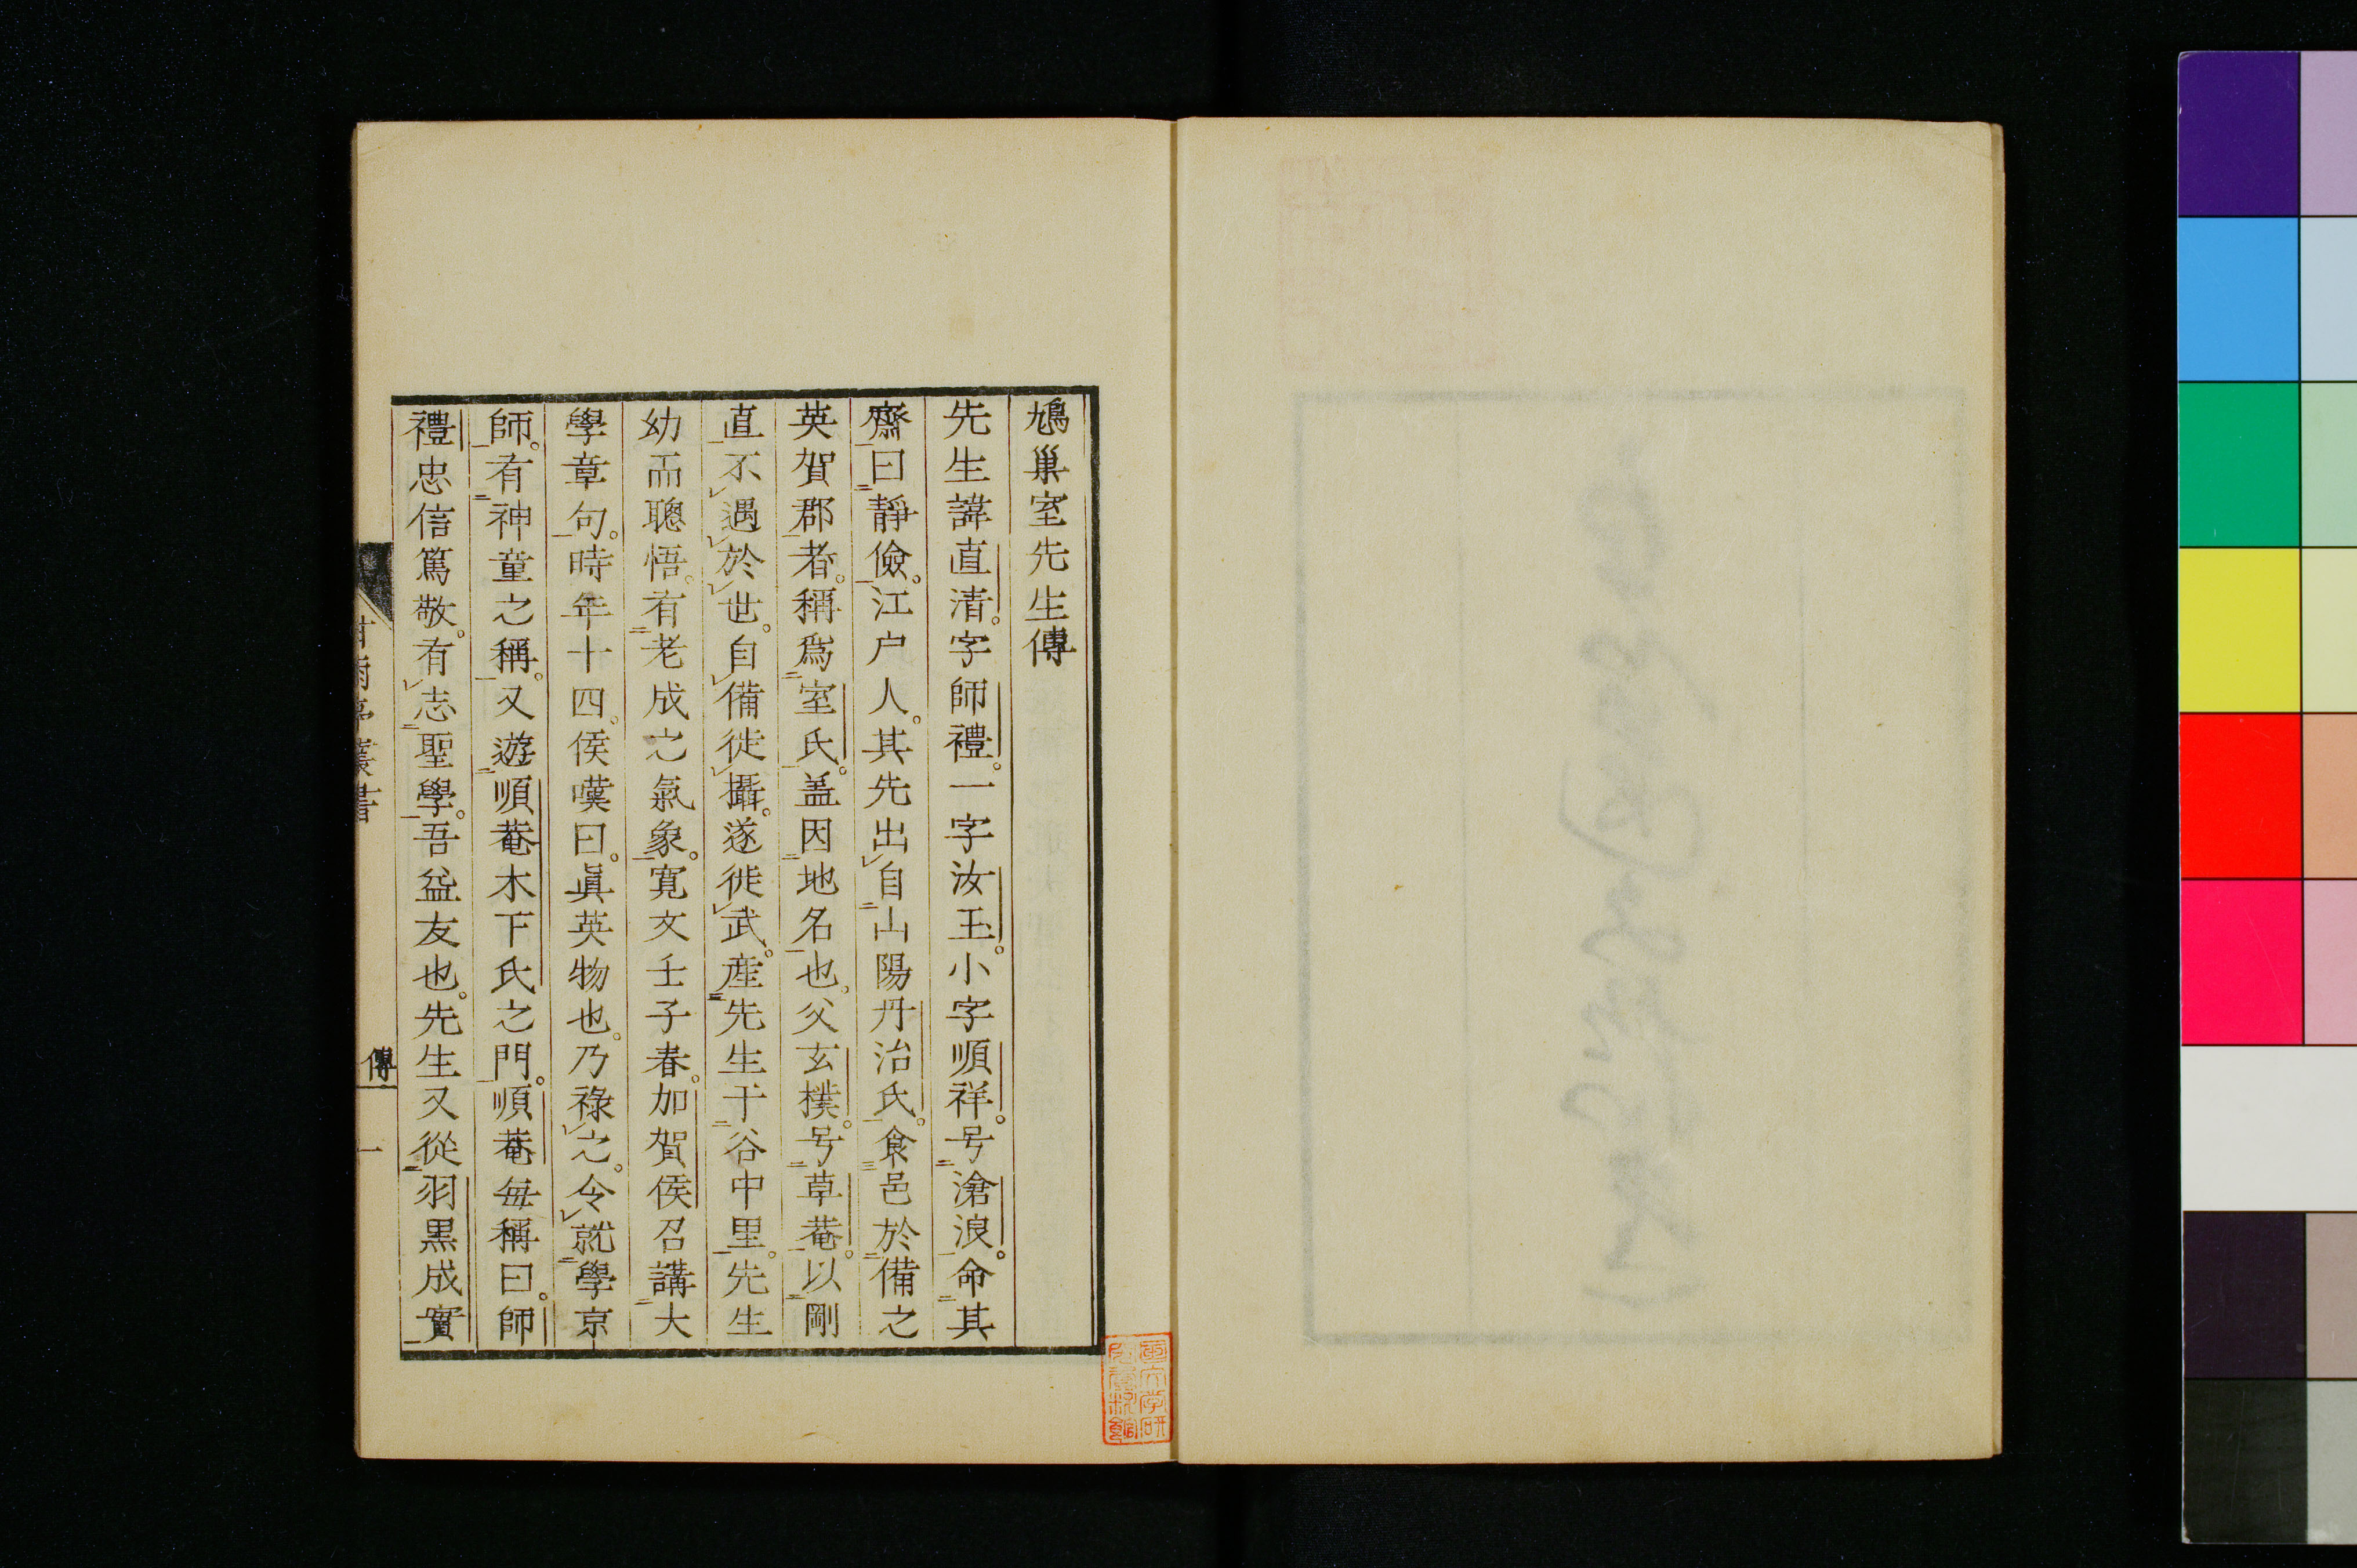 鳩巢室先生傳
先生諱直清。字師禮。一字汝玉。小字順祥。号滄浪。命其
齋曰靜儉。江户人。其先出自山陽丹治氏。食邑於備之
英賀郡者。稱爲室氏。盖因地名也。父玄樸。号草菴。以剛
直不遇於世。自備徙攝。遂徙武。產先生于谷中里。先生
幼而聰悟。有老成之氣象。寛文壬子春。加賀侯召講大
學章句。時年十四。侯嘆曰。眞英物也。乃祿之。令就學京
師。有神童之稱。又遊順菴木下氏之門。順菴每稱曰。師
禮忠信篤敬。有志聖學。吾益友也。先生又從羽黒成實
甘雨亭叢書
傳
一